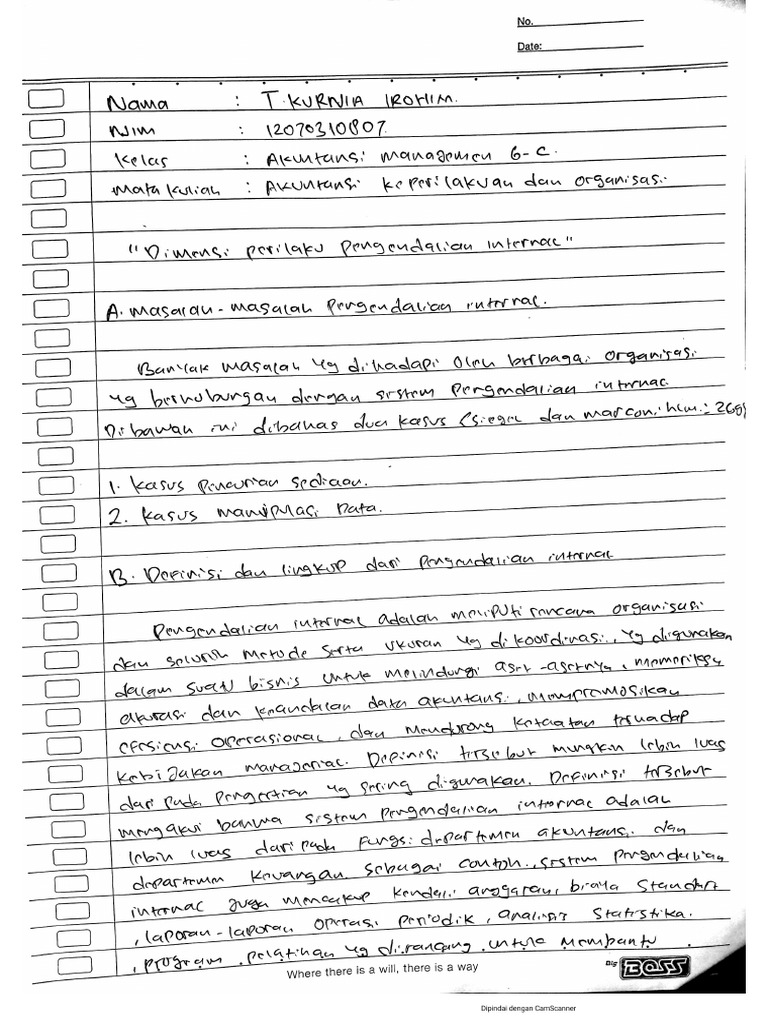 No.
Date:
Nama : T. KURNIA IROHIM.
NIM : 12070310807.
Kelas : Akuntansi managemen 6-C.
Mata kuliah : Akuntansi keperilakuan dan organisasi.
"Dimensi perilaku pengendalian internal"
A. masalah-masalah pengendalian internal.
Banyak masalah yg dihadapi oleh berbagai organisasi
yg berhubungan dengan sistem pengendalian internal.
Dibawah ini dibahas dua kasus (siegel dan marconi. hlm.:
1. Kasus pencurian sediaan.
2. Kasus manipulasi Data.
B. Definisi dan lingkup dari pengendalian internal
Pengendalian internal adalah meliputi rencana organisasi
dan seluruh metode serta ukuran yg di koordinasi, yg digunakan
dalam suatu bisnis untuk melindungi aset-asetnya, memeriksa
akurasi dan keandalan data akuntansi, mempromosikan
efesiensi operasional, dan mendorong ketaatan terhadap
kebijakan manajerial. Definisi tersebut mungkin lebih luas
dari pada pengertian yg sering digunakan. Definisi tersebut
mengakui bahwa sistem pengendalian internal adalah
lebih luas dari pada fungsi departemen akuntansi dan
departemen keuangan sebagai contoh, sistem pengendalian
internal juga mencakup kendali anggaran, biaya Standar
, laporan-laporan operasi periodik, analisis statistika.
, program pelatihan yg dirancang untuk membantu
Where there is a will, there is a way
Big BOSS
Dipindai dengan CamScanner